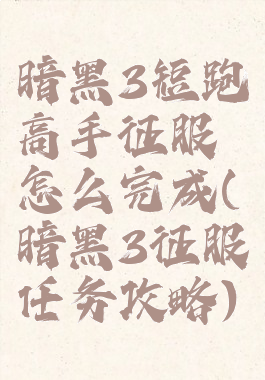 暗黑3短跑
高手征服
怎么完成(
暗黑3征服
任务攻略)